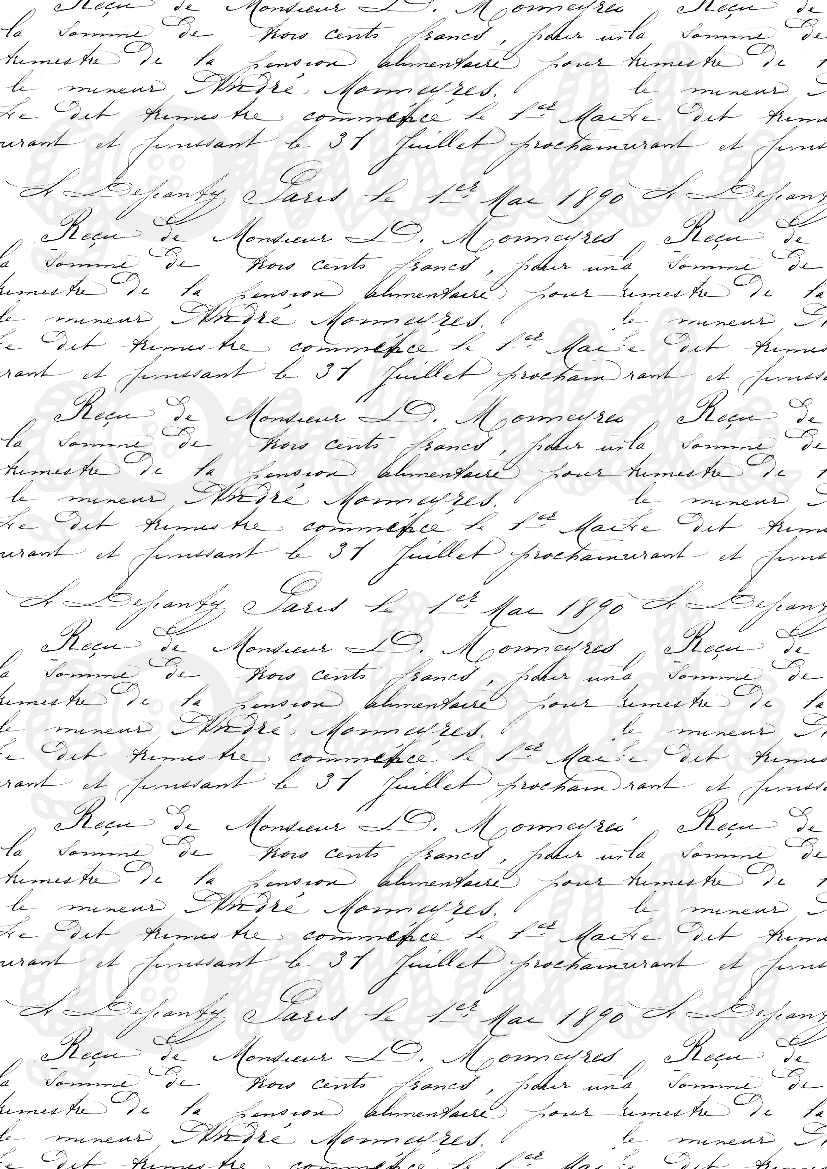 Reçu de Monsieur D. Monneyres Reçu de
la somme de trois cents francs, pour la somme de
trimestre de la pension alimentaire pour trimestre de
le mineur André Monneyres. le mineur
Le dit trimestre commence le 1er Mai Le dit
courant et finissant le 31 Juillet prochain courant et
Paris le 1er Mai 1890
Reçu de Monsieur D. Monneyres Reçu de
la somme de trois cents francs, pour una somme de
trimestre de la pension alimentaire pour trimestre de la
le mineur André Monneyres. le mineur
dit trimestre commence le 1er Mai dit
rant et finissant le 31 Juillet prochain rant et
Reçu de Monsieur D. Monneyres Reçu de
la somme de trois cents francs, pour la somme de
trimestre de la pension alimentaire pour trimestre de
le mineur André Monneyres. le mineur
dit trimestre commence le 1er Mai dit
urant et finissant le 31 Juillet prochainurant et
Paris le 1er Mai 1890
Reçu de Monsieur D. Monneyres Reçu de
la somme de trois cents francs, pour una somme de
trimestre de la pension alimentaire pour trimestre de la
le mineur André Monneyres. le mineur
dit trimestre commence le 1er Mai dit
rant et finissant le 31 Juillet prochain rant et
Reçu de Monsieur D. Monneyres Reçu de
la somme de trois cents francs, pour la somme de
trimestre de la pension alimentaire pour trimestre de
le mineur André Monneyres. le mineur
dit trimestre commence le 1er Mai dit
urant et finissant le 31 Juillet prochainurant et
Paris le 1er Mai 1890
Reçu de Monsieur D. Monneyres Reçu de
la somme de trois cents francs, pour una somme de
trimestre de la pension alimentaire pour trimestre de la
le mineur André Monneyres. le mineur
dit trimestre commence le 1er Mai dit